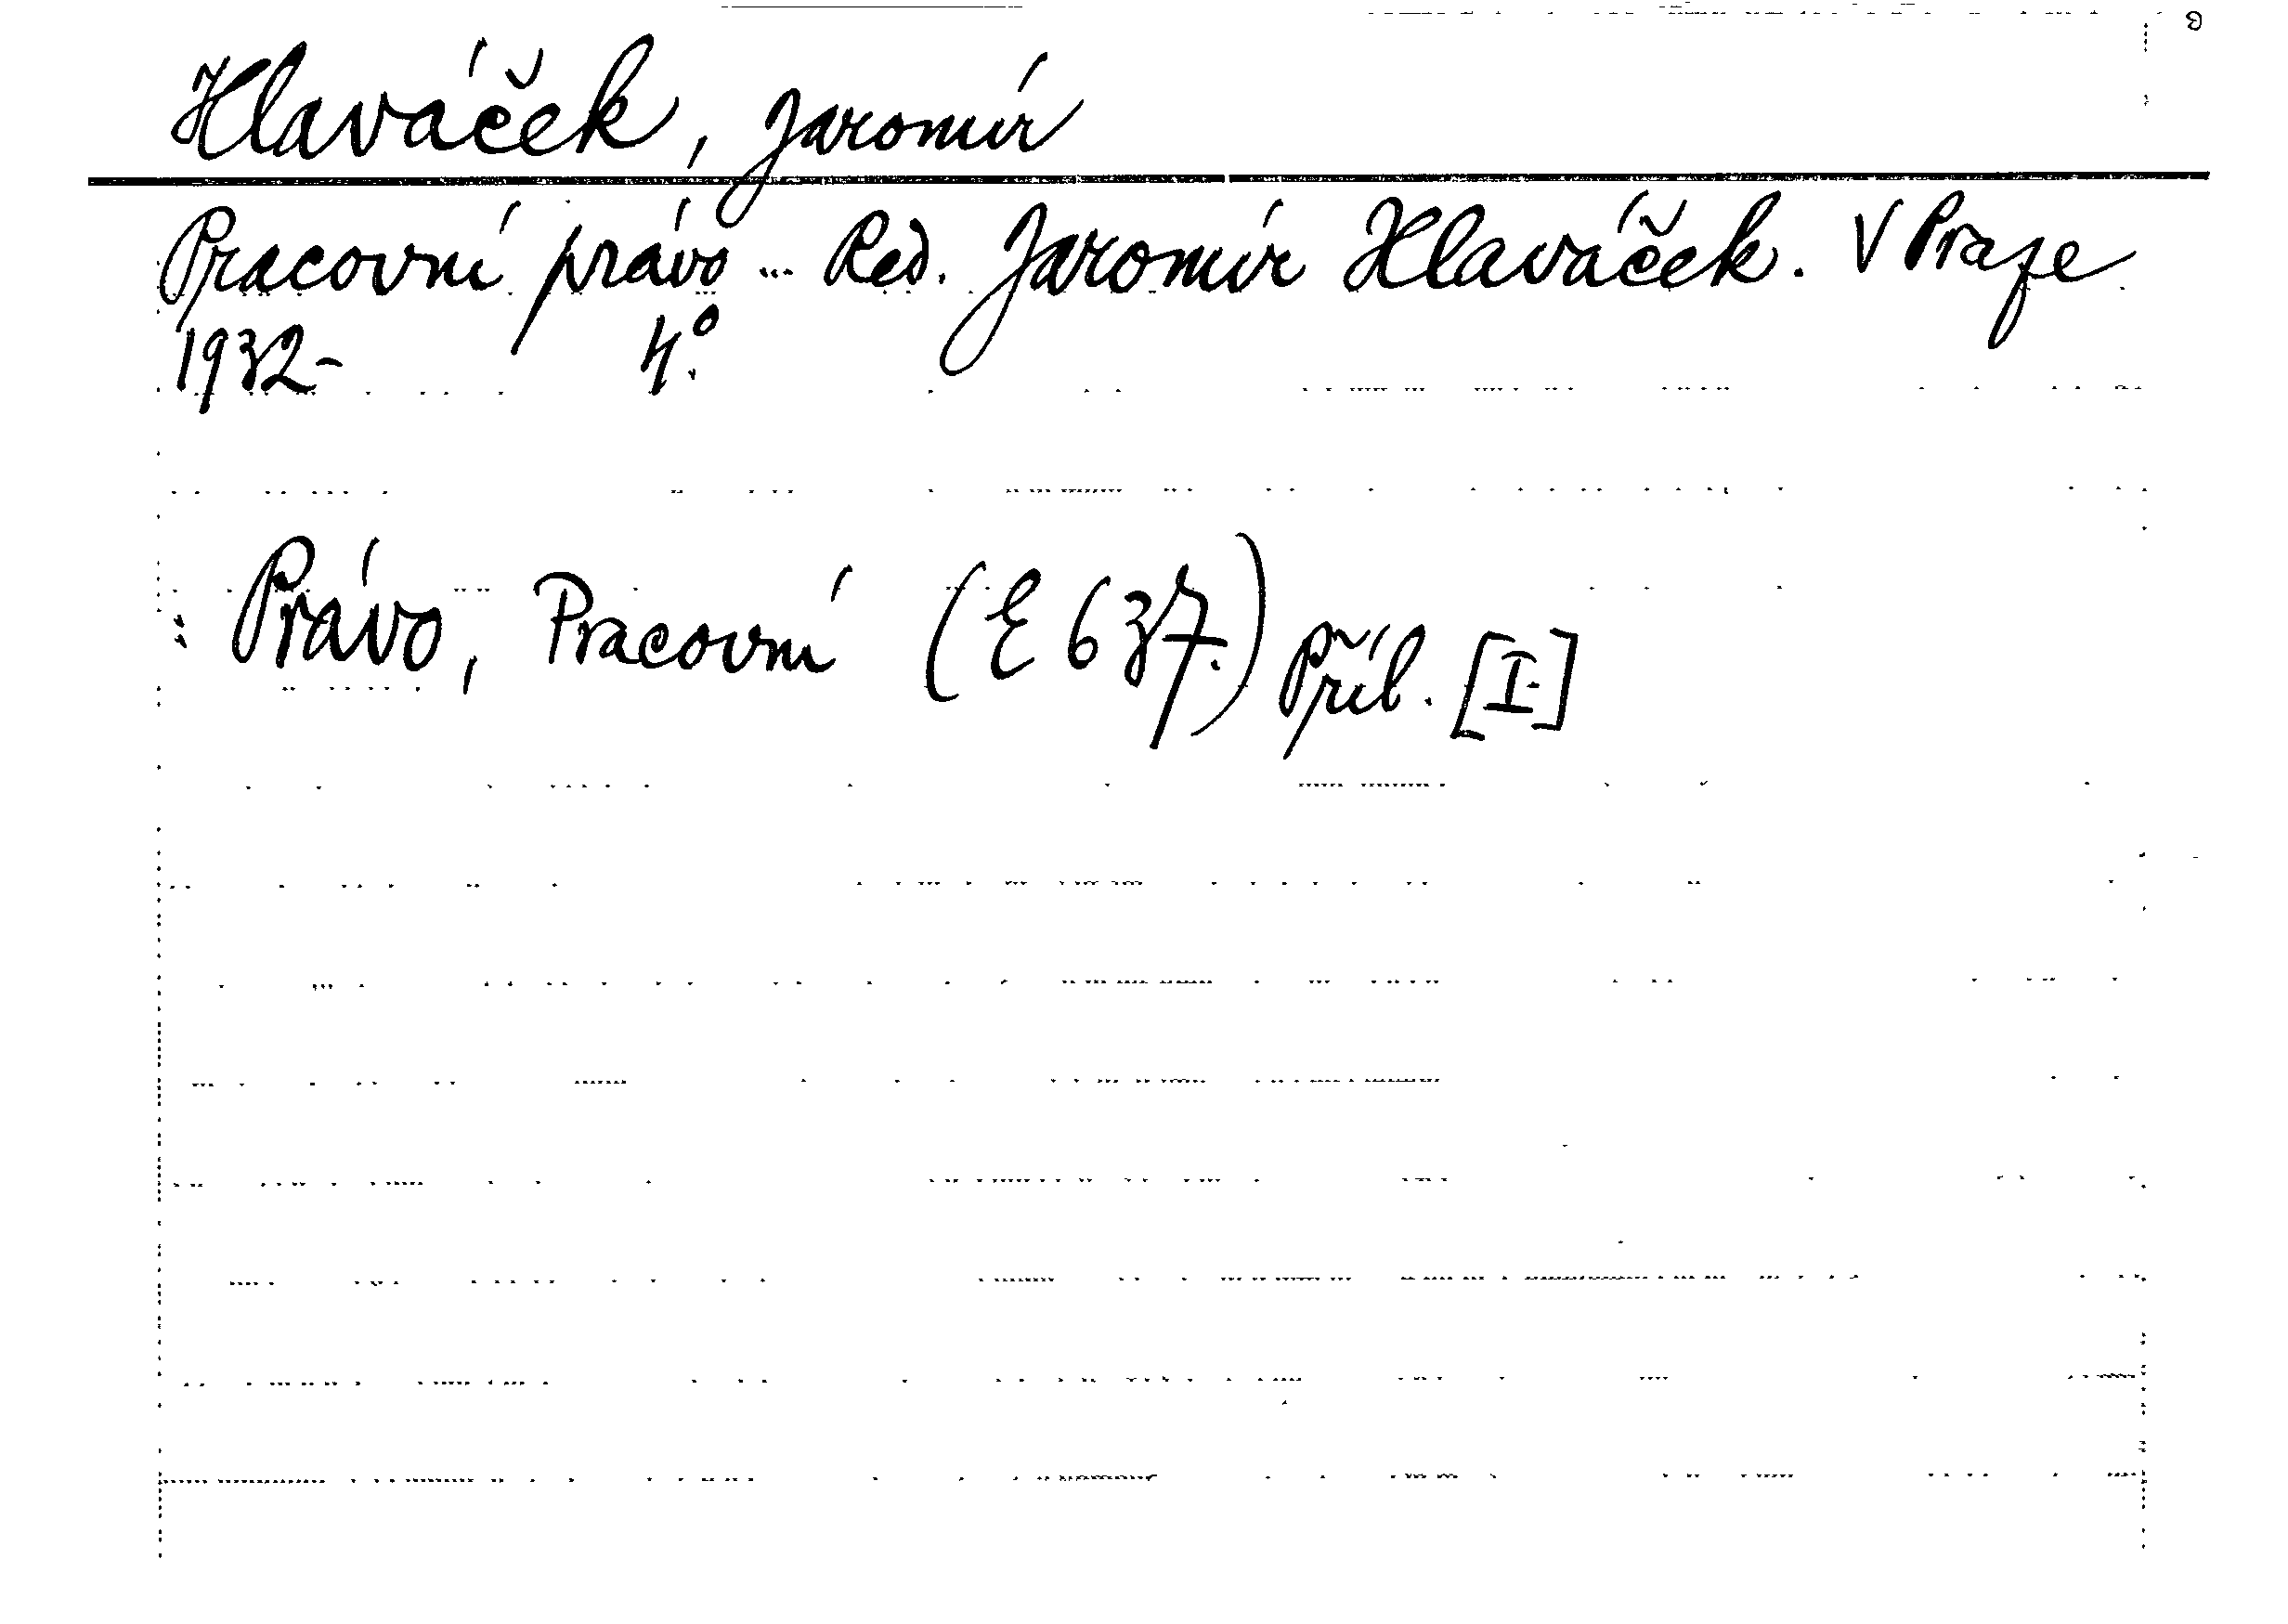 Hlaváček, Jaromír
Pracovní právo ... Red. Jaromír Hlaváček. V Praze
1932- 4.°
: Právo, Pracovní (E 637.) Příl. [I]